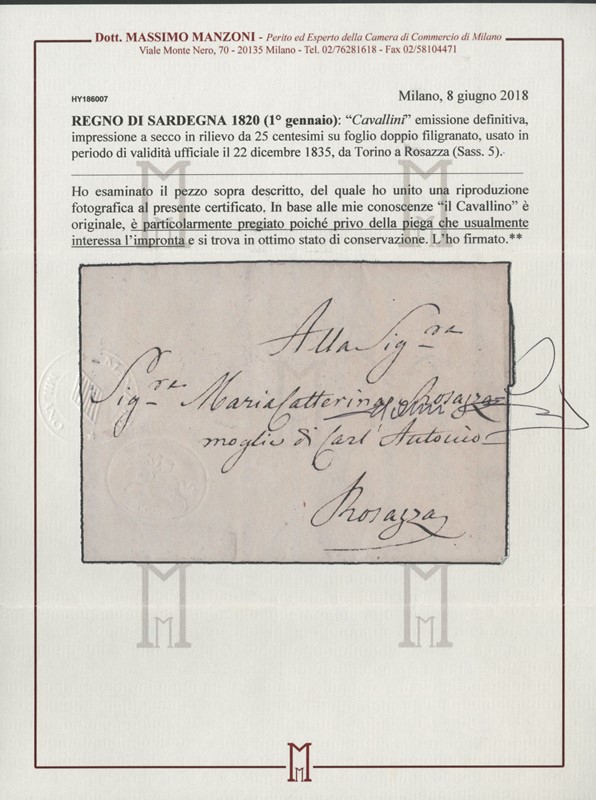 Dott. MASSIMO MANZONI - Perito ed Esperto della Camera di Commercio di Milano
Viale Monte Nero, 70 - 20135 Milano - Tel. 02/76281618 - Fax 02/58104471
HY186007
Milano, 8 giugno 2018
REGNO DI SARDEGNA 1820 (1° gennaio): “Cavallini” emissione definitiva,
impressione a secco in rilievo da 25 centesimi su foglio doppio filigranato, usato in
periodo di validità ufficiale il 22 dicembre 1835, da Torino a Rosazza (Sass. 5).
Ho esaminato il pezzo sopra descritto, del quale ho unito una riproduzione
fotografica al presente certificato. In base alle mie conoscenze “il Cavallino” è
originale, è particolarmente pregiato poiché privo della piega che usualmente
interessa l’impronta e si trova in ottimo stato di conservazione. L’ho firmato.**
Alla Sig.ra
Sig.ra Maria Catterina Rosazza
moglie di Carl' Antonio
Rosazza